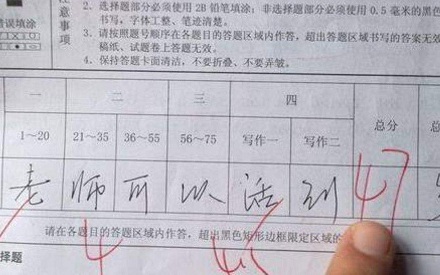 错误填涂
注意事项
2. 选择题部分必须使用 2B 铅笔填涂；非选择题部分必须使用 0.5 毫米的黑色
书写，字体工整、笔迹清楚。
3. 请按照题号顺序在各题目的答题区域内作答，超出答题区域书写的答案无效
稿纸、试题卷上答题无效。
4. 保持答题卡面清洁，不要折叠、不要弄皱。
一 二 三 四 总分
1~20 21~35 36~55 56~75 写作一 写作二
老 师 可 以 活 到 47
请在各题目的答题区域内作答，超出黑色矩形边框限定区域的
择题 4